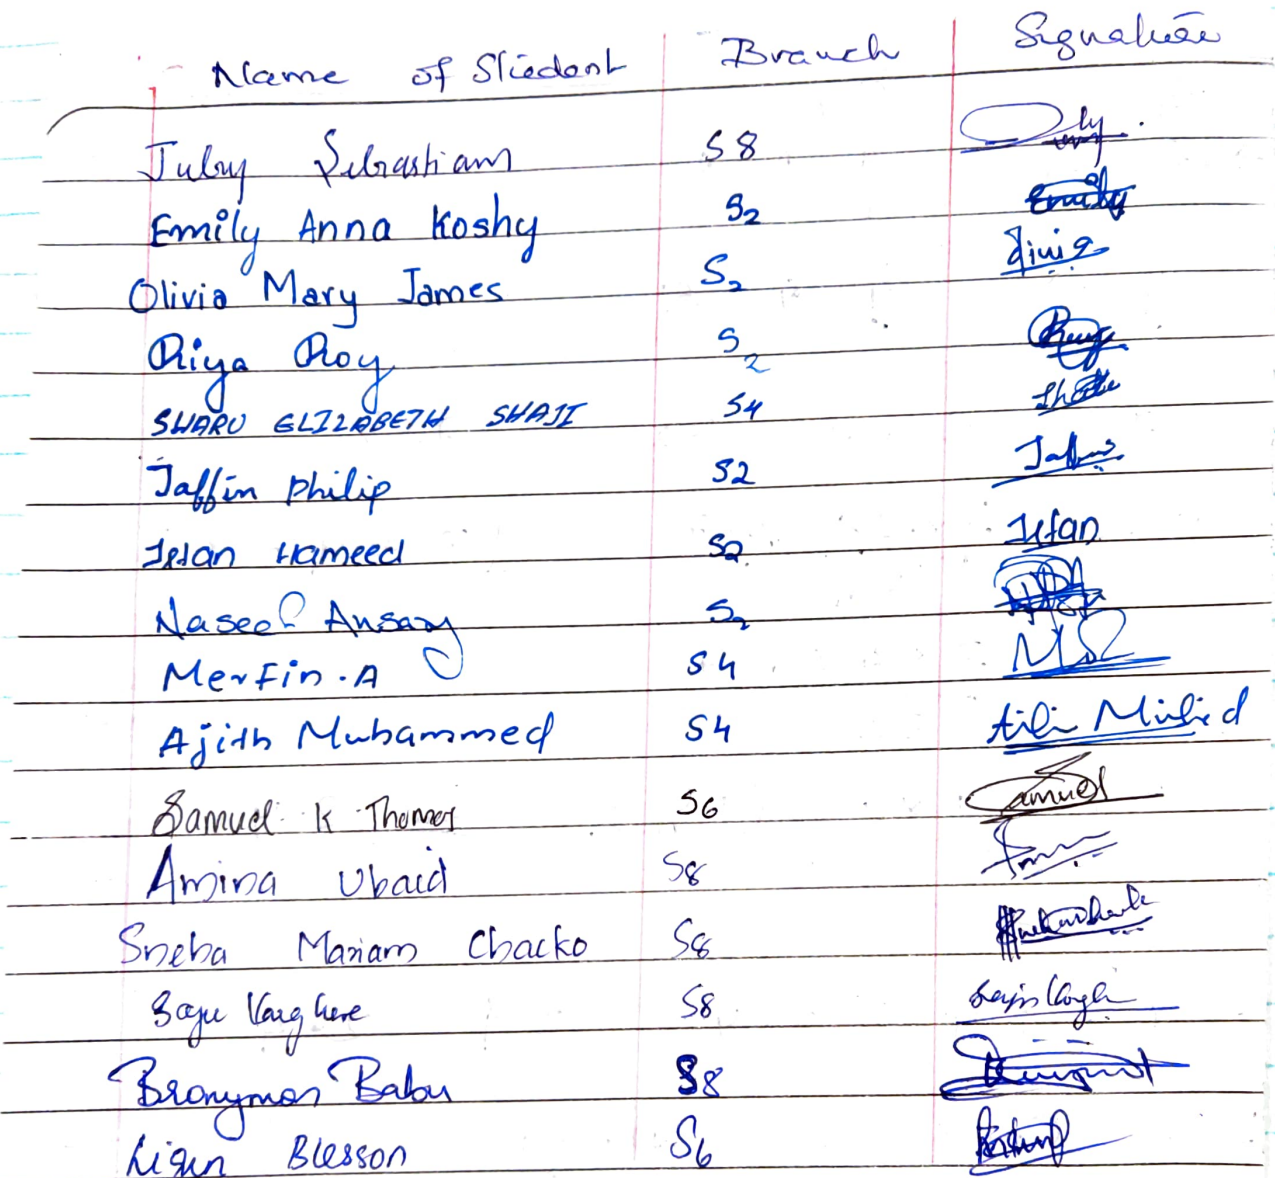 Name of Student Branch Signature
Juby Sebastian S8
Emily Anna Koshy S2 Emily
Olivia Mary James S2
Riya Roy S2
SHARU ELIZABETH SHAJI S4
Jaffin Philip S2
Irfan Hameed S2 Irfan
Naseef Ansary S2
Merfin.A S4
Ajith Muhammed S4
Samuel K Thomas S6 Samuel
Amina Ubaid S8
Sneha Mariam Chacko S8
Saju Varghese S8
Bronymon Babu S8
Ligin Blesson S6